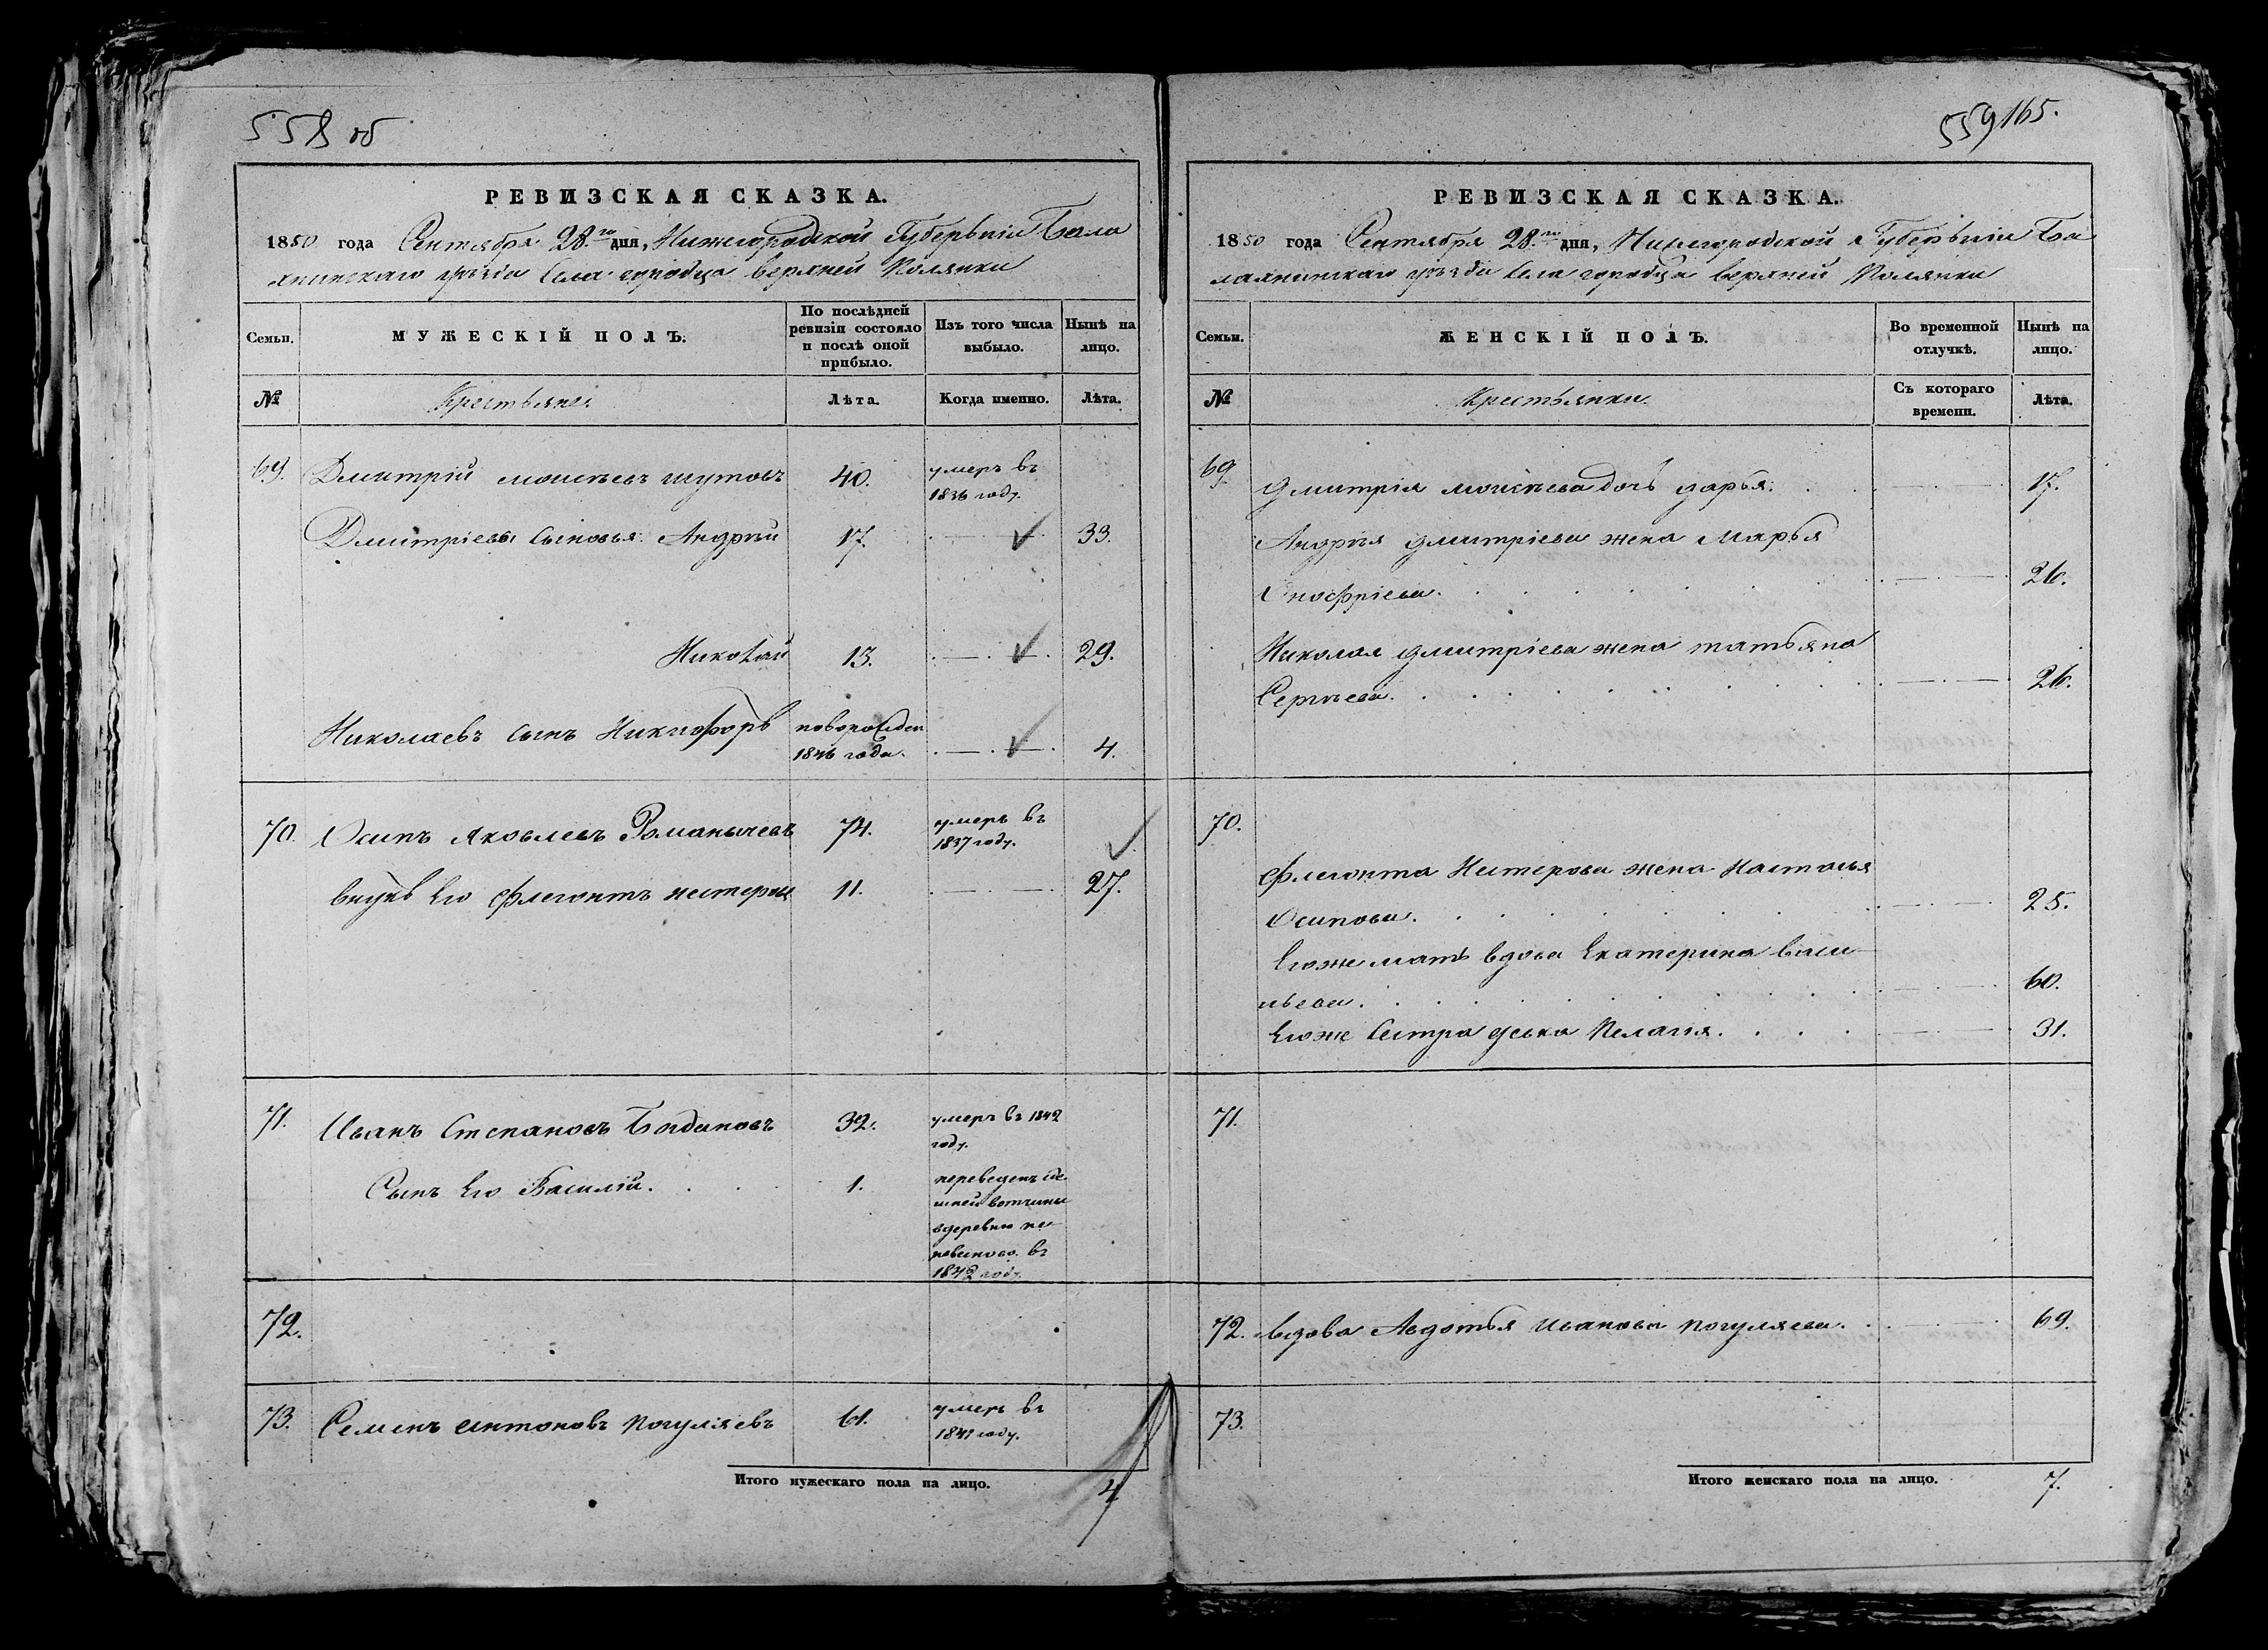 558 об
РЕВИЗСКАЯ СКАЗКА.
1850 года Сентября 28.го дня, Нижегородской Губерьнiи Бала
хнинскаго уѣзда Села городца верхней Полянки
Семьи.
МУЖЕСКІЙ ПОЛЪ.
По послѣдней
ревизіи состояло
и послѣ оной
прибыло.
Изъ того числа
выбыло.
Нынѣ на
лицо.
№
Крестьяне
Лѣта.
Когда именно.
Лѣта.
69. Дмитрій моисѣевъ шутовъ 40. умеръ въ
1836 году.
Дмитріевы сыновья Андрѣй 17. 33.
Николай 13. 29.
Николаевъ сынъ Никифоръ новорожден
1846 года. 4.
70. Осипъ Яковлевъ Романычевъ 74. умеръ въ
1837 году.
внукъ его флегонтъ нестеровъ 11. 27.
71. Иванъ Степановъ Богдановъ 32. умеръ въ 1842
году.
Сынъ его Василій. 1. переведенъ сде
шней вотчины
вдеревню
въ
1842 году.
72.
73. Семенъ антоновъ погуляевъ 61. умеръ въ
1841 году.
Итого мужескаго пола на лицо. 4
559 165.
РЕВИЗСКАЯ СКАЗКА.
1850 года Сентября 28.го дня, Нижегородской Губерьнiи Ба
лахнинскаго уѣзда Села городца верхней Полянки
Семьи.
ЖЕНСКІЙ ПОЛЪ.
Во временной
отлучкѣ.
Нынѣ на
лицо.
№
Крестьянки.
Съ котораго
времени.
Лѣта.
69. дмитрія моисѣева дочь дарья. 17.
Андрѣя дмитріева жена Марья
Онофріева. 26.
Николая дмитріева жена татьяна
Сергѣева. 26.
70.
флегонта Нестерова жена Настасья
Осипова. 25.
Егоже мать вдова Екатерина васи
льева. 60.
Егоже Сестра девка Пелагія. 31.
71.
72. вдова Авдотья иванова погуляева. 69.
73.
Итого женскаго пола на лицо. 7.